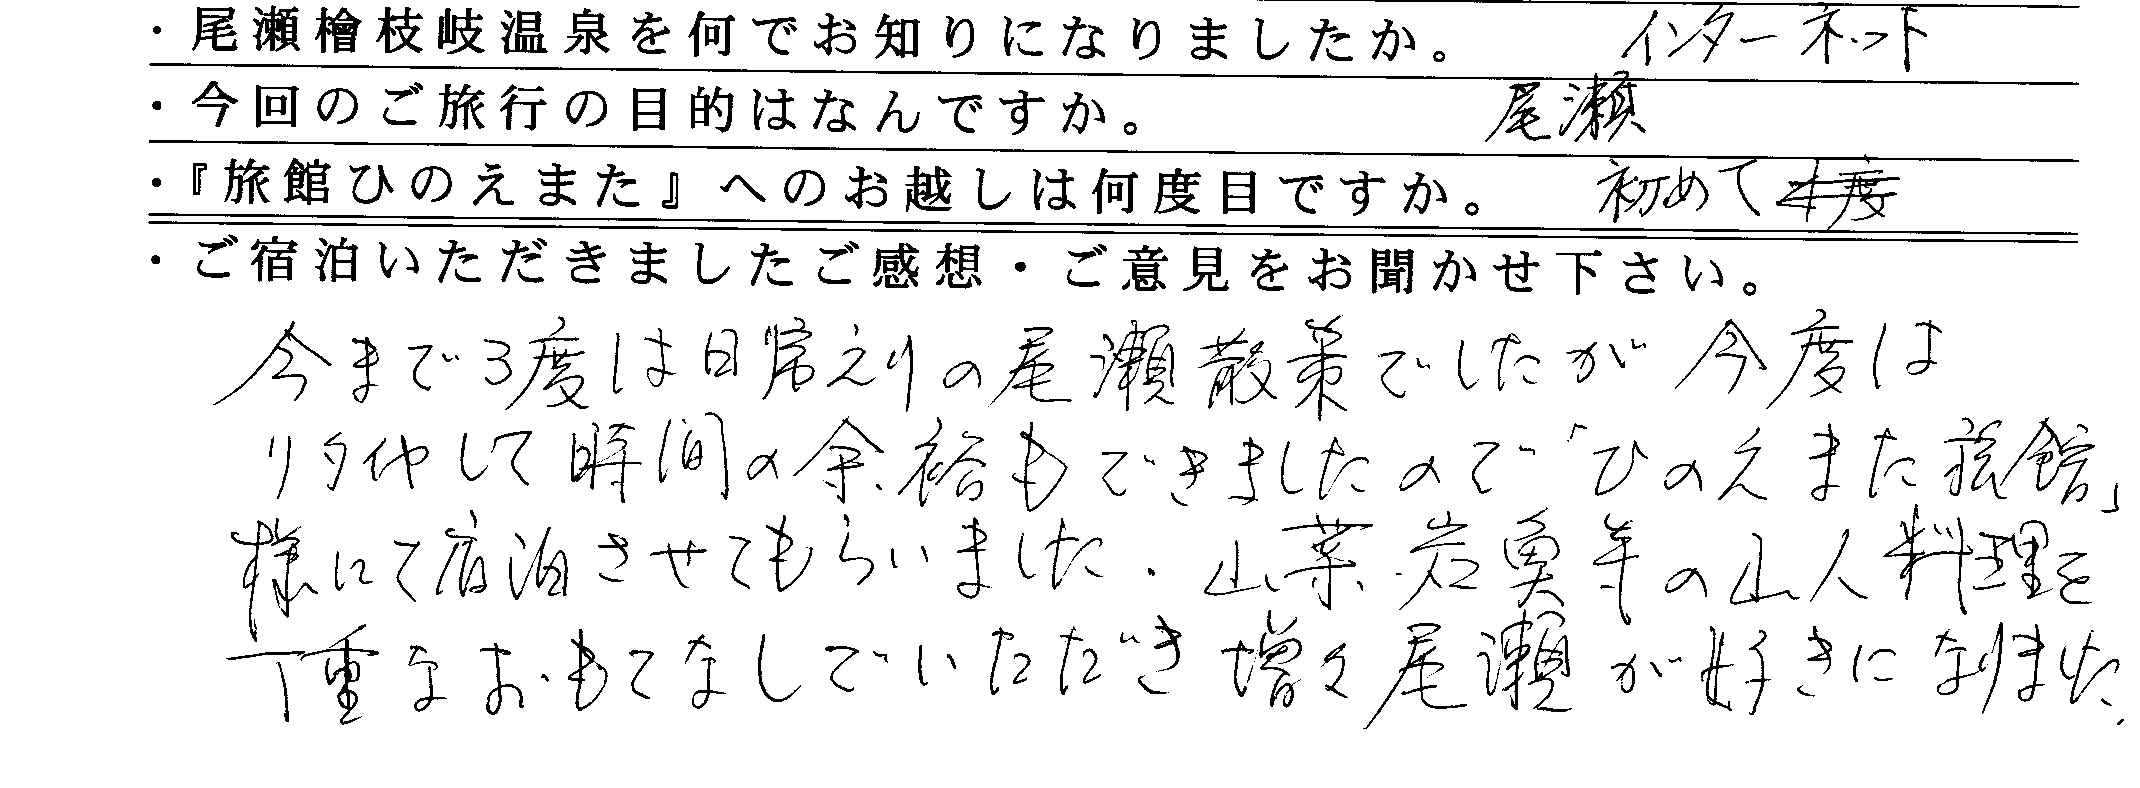 ・尾瀬檜枝岐温泉を何でお知りになりましたか。 インターネット
・今回のご旅行の目的はなんですか。 尾瀬
・『旅館ひのえまた』へのお越しは何度目ですか。 初めて
・ご宿泊いただきましたご感想・ご意見をお聞かせ下さい。
今まで3度は日帰えりの尾瀬散策でしたが今度は
リタイヤして時間の余裕もできましたので「ひのえまた旅館」
様にて宿泊させてもらいました。山菜、岩魚等の山人料理を
丁重なおもてなしでいただき増々尾瀬が好きになりました。